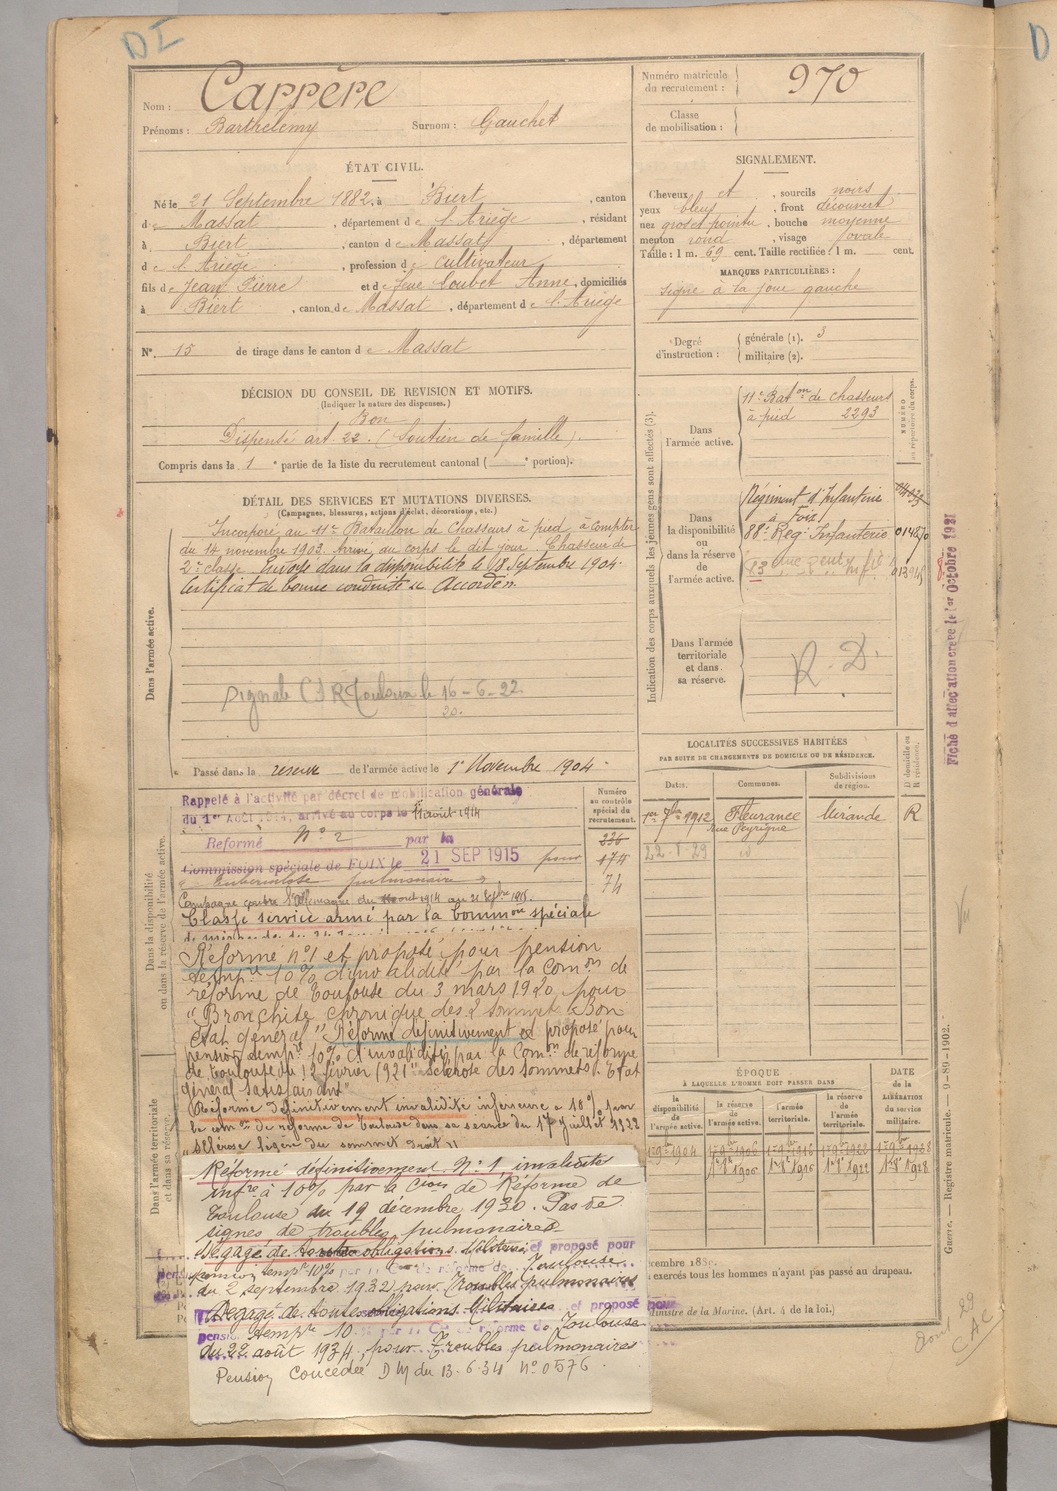 DI
Nom : Carrère
Prénoms : Barthélemy Surnom : Gauchet
Numéro matricule du recrutement : 970
Classe de mobilisation :
ÉTAT CIVIL.
Né le 21 Septembre 1882, à Biert , canton
de Massat , département de l'Ariège , résidant
à Biert , canton de Massat , département
de l'Ariège , profession de cultivateur
fils de Jean Pierre et de feue Loubet Anne , domiciliés
à Biert , canton de Massat , département de l'Ariège
N° 15 de tirage dans le canton de Massat
SIGNALEMENT.
Cheveux , sourcils noirs
yeux bleus , front découvert
nez gros et pointu , bouche moyenne
menton rond , visage ovale
Taille : 1 m. 69 cent. Taille rectifiée : 1 m. cent.
MARQUES PARTICULIÈRES :
signe à la joue gauche
Degré d'instruction : générale (1). 3
militaire (2).
DÉCISION DU CONSEIL DE REVISION ET MOTIFS.
(Indiquer la nature des dispenses.)
Bon
Dispensé art. 22. (Soutien de famille).
Compris dans la 1e partie de la liste du recrutement cantonal ( e portion).
DÉTAIL DES SERVICES ET MUTATIONS DIVERSES.
(Campagnes, blessures, actions d'éclat, décorations, etc.)
Dans l'armée active.
Incorporé au 11e Bataillon de Chasseurs à pied, à compter
du 14 novembre 1903. Arrivé au corps le dit jour. Chasseur de
2e classe. Envoyé dans la disponibilité le 18 Septembre 1904.
Certificat de bonne conduite Accordé.
Signalé Toulouse le 16-6-22.
Passé dans la réserve de l'armée active le 1er Novembre 1904.
Indication des corps auxquels les jeunes gens sont affectés (3).
NUMÉRO au répertoire du corps.
Dans l'armée active.
11e Baton de chasseurs
à pied 2293
Dans la disponibilité ou dans la réserve de l'armée active.
Régiment d'Infanterie
à Foix
88e Reg. Infanterie
Dans l'armée territoriale et dans sa réserve.
R.D.
Fiche d'affectation créée le 1er Octobre 1921
LOCALITÉS SUCCESSIVES HABITÉES
PAR SUITE DE CHANGEMENTS DE DOMICILE OU DE RÉSIDENCE.
Dates. Communes. Subdivisions de région. D domicile ou R résidence.
1er 1912 Fleurance Mirande R
rue Peyrigne
22-1-29 id
Dans la disponibilité ou dans la réserve de l'armée active.
Numéro au contrôle spécial du recrutement.
336
174
74
Rappelé à l'activité par décret de mobilisation générale
du 1er Août 1914, arrivé au corps le 11 août 1914
Reformé n° 2 par la
Commission spéciale de FOIX le 21 SEP 1915 pour
tuberculose pulmonaire
Campagne contre l'Allemagne du 11 août 1914 au 21 Sepbre 1915.
Classé service armé par la Common spéciale
Réformé n°1 et proposé pour pension
tempre 10% d'invalidité par la Comon de
réforme de Toulouse du 3 mars 1920 pour
"Bronchite chronique des 2 sommets. Bon
état général" Réformé définitivement et proposé pour
pension tempre 10% d'invalidité par la Comon de réforme
de Toulouse du 12 février 1921 "sclérose des sommets. Etat
général satisfaisant"
Réformé définitivement invalidité inférieure à 10% par
la comon de réforme de Toulouse dans sa séance du 17 juillet 1922
"sclérose légère du sommet droit"
Dans l'armée territoriale et dans sa réserve.
Réformé définitivement N° 1 invalidité
infre à 10% par la Cion de Réforme de
Toulouse du 19 décembre 1930. Pas de
signes de troubles pulmonaires
Dégagé de toutes obligations Militaires et proposé pour
pension tempre 10% par la Con de réforme de Toulouse
du 2 septembre 1932 pour Troubles pulmonaires
Dégagé de toutes obligations Militaires et proposé pour
pension tempre 10 par la Con de réforme de Toulouse
du 22 août 1934, pour Troubles pulmonaires
Pension Concédée D M du 13.6.34 n° 0576
ÉPOQUE
À LAQUELLE L'HOMME DOIT PASSER DANS
DATE de la LIBÉRATION du service militaire.
la disponibilité de l'armée active. la réserve de l'armée active. l'armée territoriale. la réserve de l'armée territoriale.
exercés tous les hommes n'ayant pas passé au drapeau.
Ministre de la Marine. (Art. 4 de la loi.)
Guerre. — Registre matricule. — 9-89-1902.
D